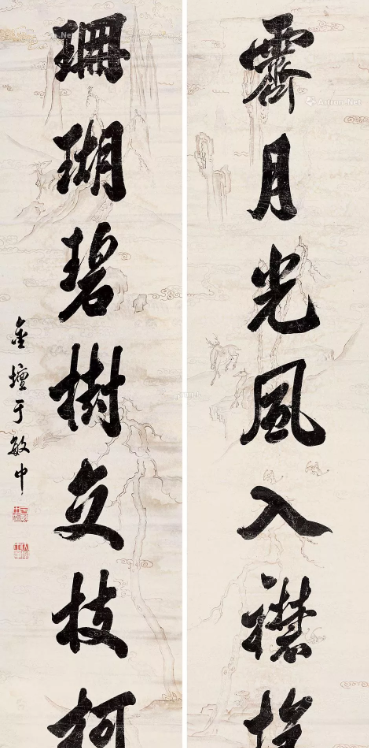 霽月光風入襟抱
珊瑚碧樹交枝柯
金壇于敏中